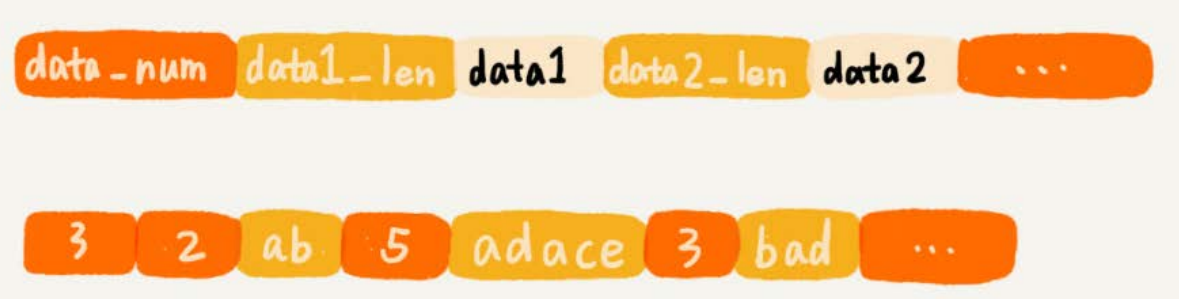 data_num data1_len data1 data2_len data2 ...
3 2 ab 5 adace 3 bad ...